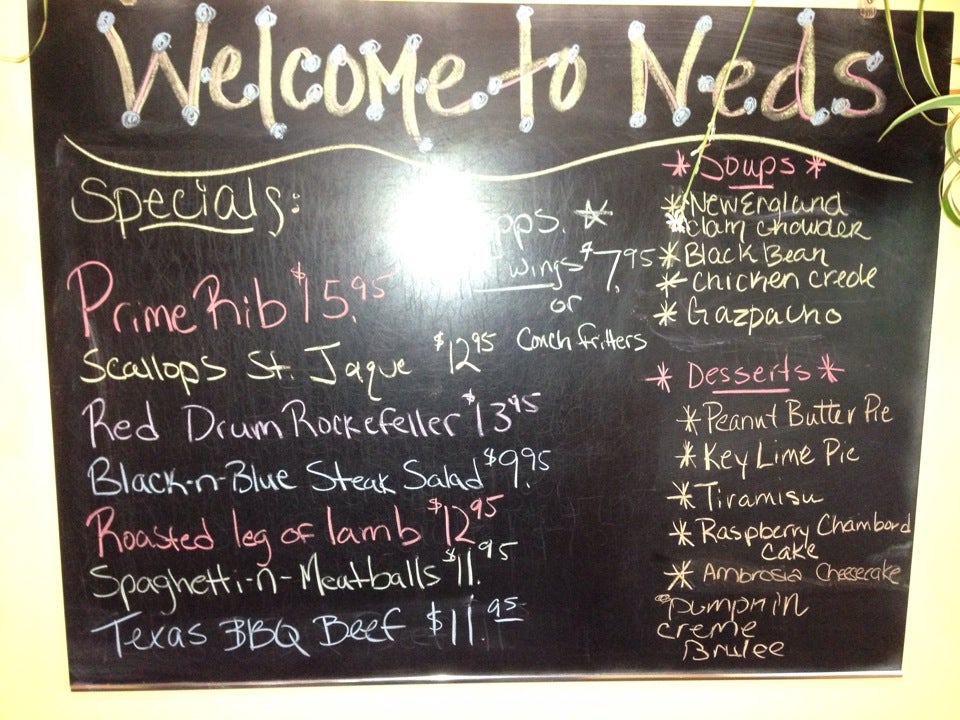 Welcome to Neds
Specials:
Prime Rib $15.95
Scallops St. Jaque $12.95
Red Drum Rockefeller $13.95
Black-n-Blue Steak Salad $9.95
Roasted leg of lamb $12.95
Spaghetti-n-Meatballs $11.95
Texas BBQ Beef $11.95
pps. *
wings $7.95
or
Conch fritters
* Soups *
* New England
clam chowder
* Black Bean
* Chicken creole
* Gazpacho
* Desserts *
* Peanut Butter Pie
* Key Lime Pie
* Tiramisu
* Raspberry Chambord
cake
* Ambrosia Cheesecake
Pumpkin
creme
Brulee